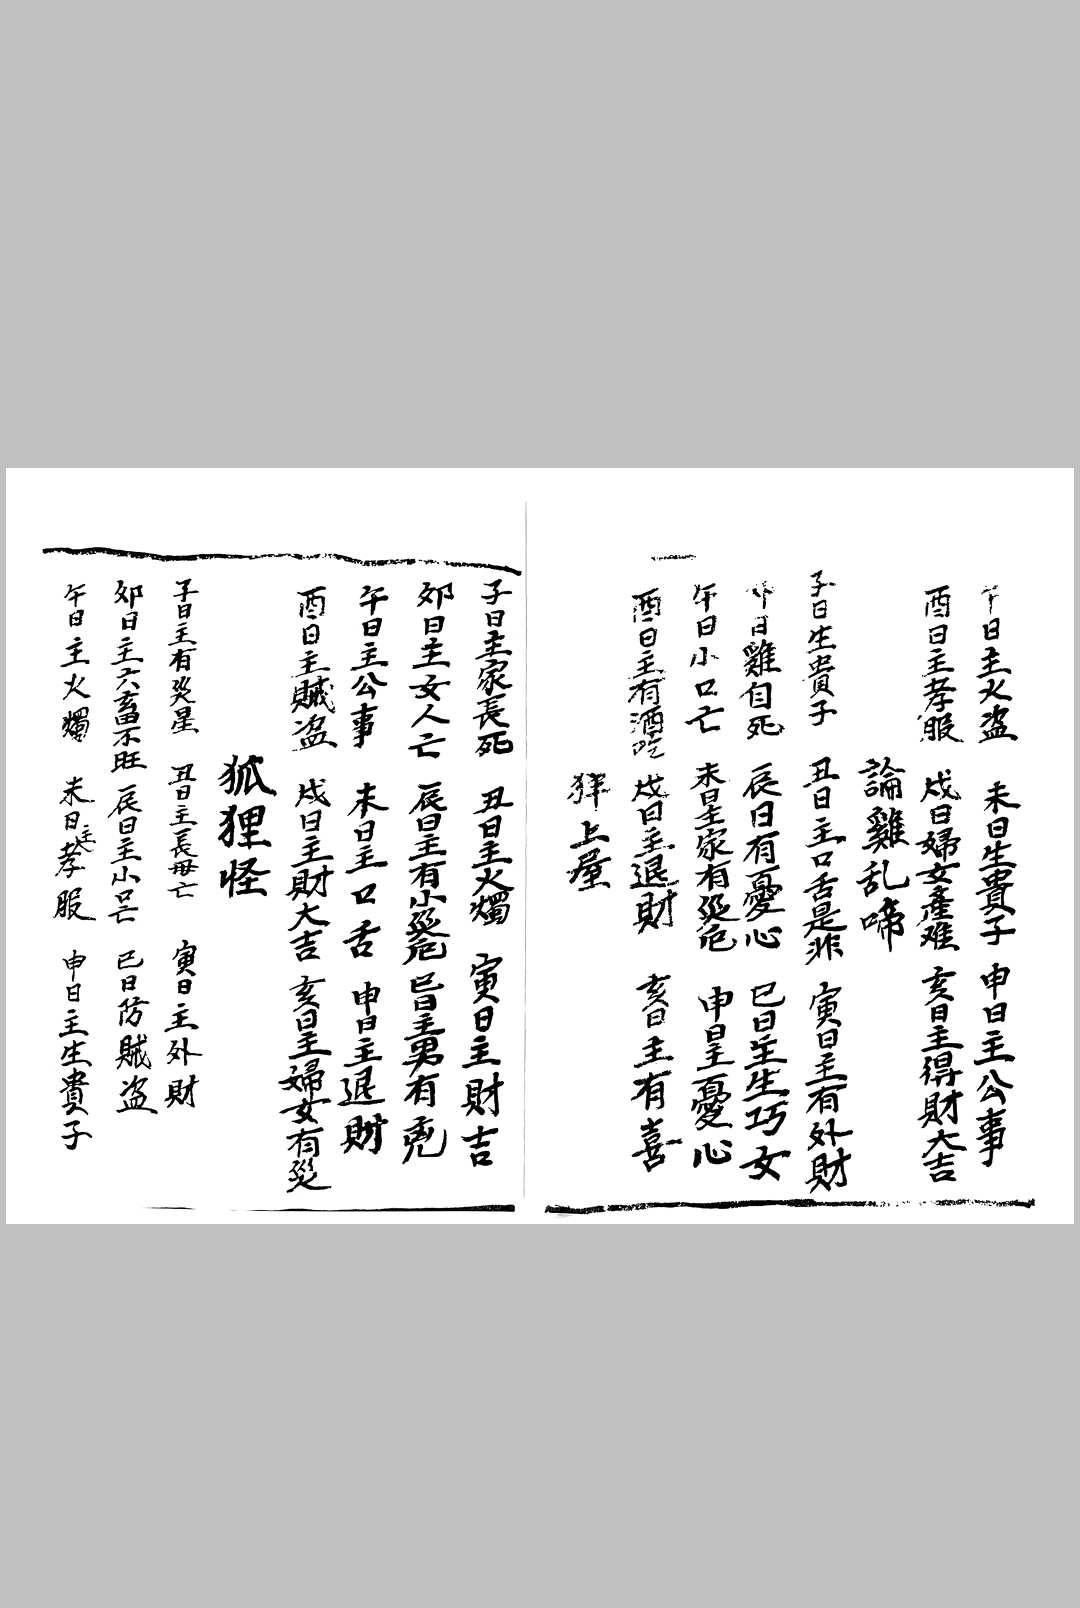 午日主火盗 未日生貴子 申日主公事
酉日主孝服 戍日婦女產难 亥日主得財大吉
論雞乱啼
子日生貴子 丑日主口舌是非 寅日主有外財
卯日雞自死 辰日有憂心 巳日主生巧女
午日小口亡 未日主家有災危 申日主憂心
酉日主有酒吃 戍日主退財 亥日主有喜
上屋
子日主家長死 丑日主火燭 寅日主財吉
卯日主女人亡 辰日主有小災危 巳日主男有
午日主公事 未日主口舌 申日主退財
酉日主賊盗 戍日主財大吉 亥日主婦女有災
狐狸怪
子日主有災星 丑日主長毋亡 寅日主外財
卯日主六畜不旺 辰日主小口亡 巳日防賊盗
午日主火燭 未日主孝服 申日主生貴子